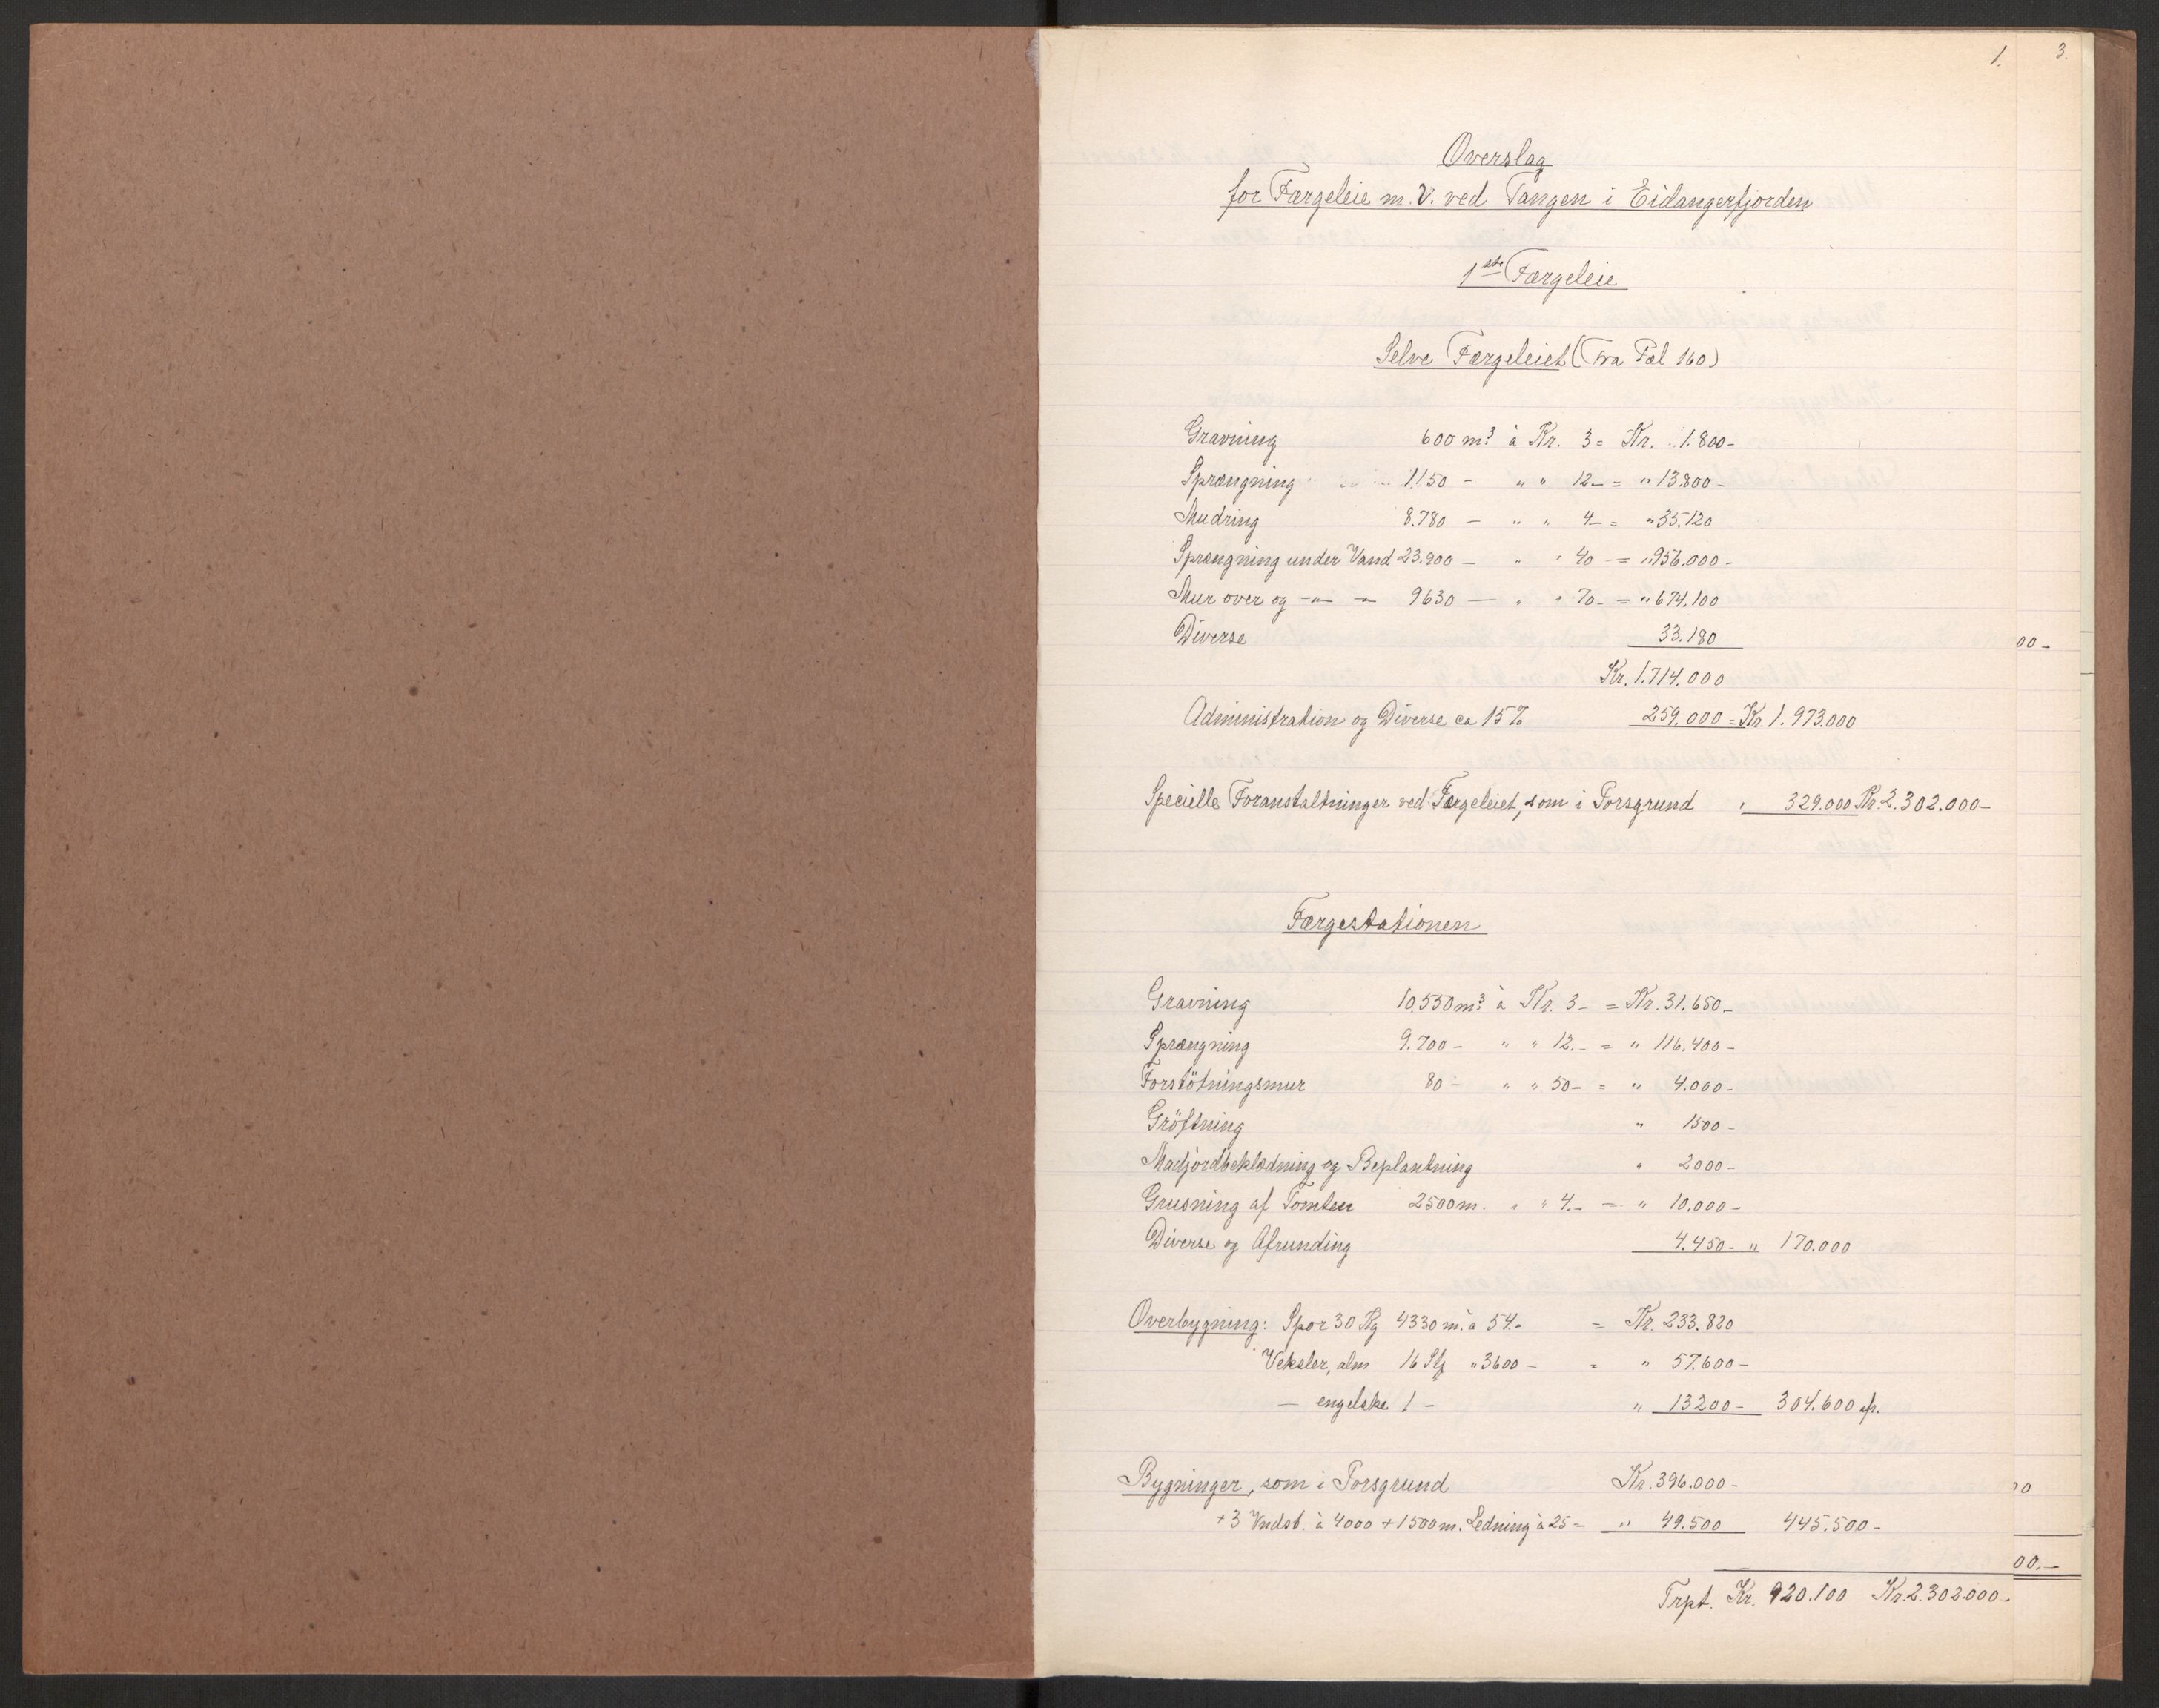 1.
3.
Overslag
for Færgeleie m. V. ved Tangen i Eidangerfjorden
1ste Færgeleie
Selve Færgeleiet (Fra Pæl 160)
Gravning 600 m3 à Kr. 3 = Kr. 1.800 -
Sprængning 1.150 - " " 12 - = " 13.800 -
Mudring 8.780 - " " 4 - = " 35.120
Sprængning under Vand 23.900 - " " 40 - = " 956.000 -
Mur over og -"- -"- 9630 - " " 70 - = " 674.100
Diverse 33.180
00 -
Kr. 1.714.000
Administration og Diverse ca 15% 259.000 = Kr. 1.973.000
Specielle Foranstaltninger ved Færgeleiet, som i Porsgrund " 329.000 Kr. 2.302.000 -
Færgestationen
Gravning 10.550 m3 à Kr. 3 - = Kr. 31.650 -
Sprængning 9.700 - " " 12. - = " 116.400 -
Forstötningsmur 80 - " " 50 - = " 4.000 -
Gröftning " 1500 -
Madjordbeklædning og Beplantning " 2000 -
Grusning af Tomten 2500 m. " " 4. - = " 10.000 -
Diverse og Afrunding 4.450 - " 170.000
Overbygning: Spor 30 Kg 4330 m. à 54. - = Kr. 233.820
Veksler, alm 16 Stk " 3600 - = " 57.600 -
— engelske 1 - " 13200 - 304.600
Bygninger, som i Porsgrund Kr. 396.000 -
+ 3 Vndst. à 4000 + 1500 m. Ledning à 25 = " 49.500 445.500 -
00. -
Trpt. Kr. 920.100 Kr. 2.302.000 -